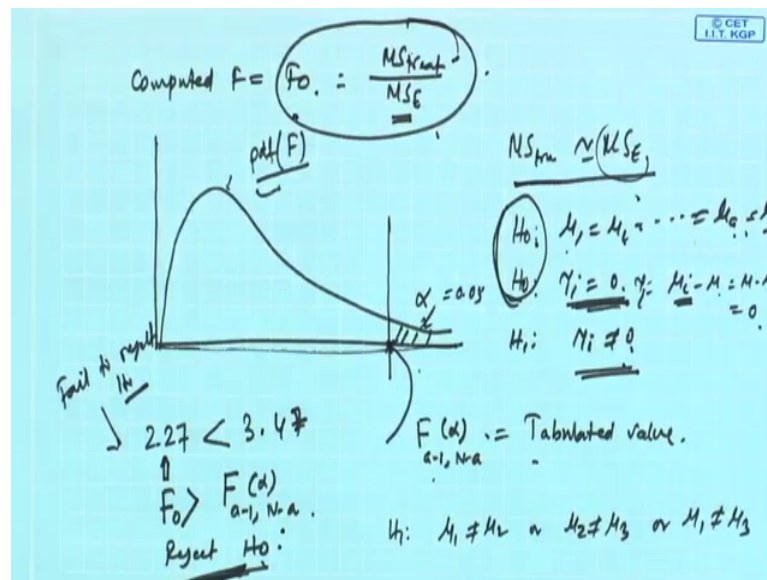 © CET
I.I.T. KGP
Computed F = F₀. = MStreat / MSE.
pdf(F)
MStre ≃ MSE,
H₀: μ₁ = μ₂ = ···· = μₐ = μ
H₀: τᵢ = 0. τᵢ = μᵢ - μ = μ - μ
= 0
H₁: τᵢ ≠ 0
α = 0.05
Fail to reject
H₀
2.27 < 3.47
F (α) a-1, N-a := Tabulated value.
F₀ > F (α) a-1, N-a.
Reject H₀:
H₁: μ₁ ≠ μ₂ or μ₂ ≠ μ₃ or μ₁ ≠ μ₃